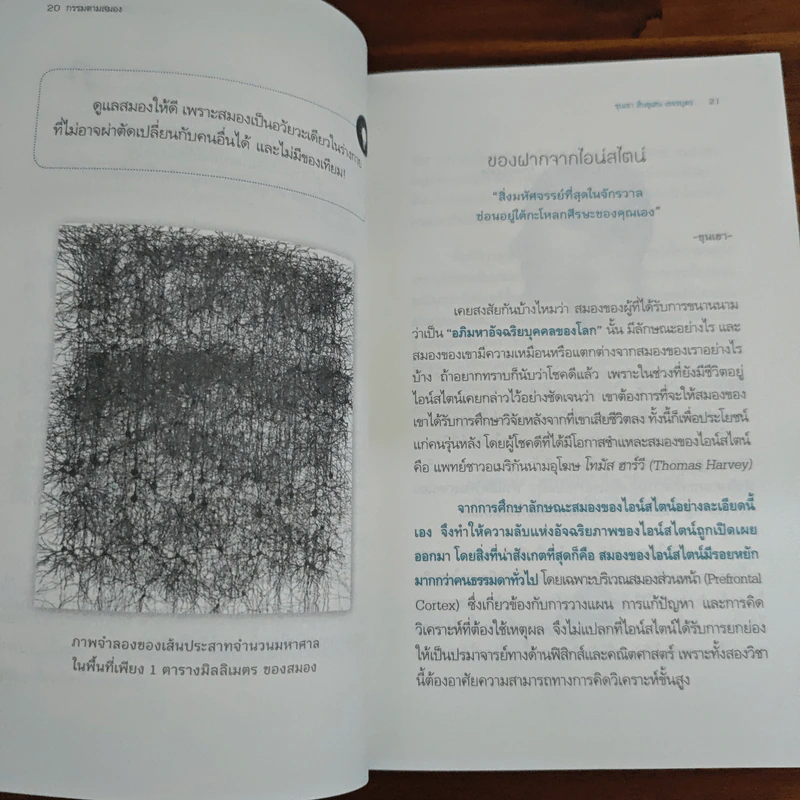 20 กรรมตามสมอง
ดูแลสมองให้ดี เพราะสมองเป็นอวัยวะเดียวในร่างกาย
ที่ไม่อาจผ่าตัดเปลี่ยนกับคนอื่นได้ และไม่มีของเทียม!
ภาพจำลองของเส้นประสาทจำนวนมหาศาล
ในพื้นที่เพียง 1 ตารางมิลลิเมตร ของสมอง
21
ของฝากจากไอน์สไตน์
"สิ่งมหัศจรรย์ที่สุดในจักรวาล
ซ่อนอยู่ใต้กะโหลกศีรษะของคุณเอง"
-ขุนเขา-
เคยสงสัยกันบ้างไหมว่า สมองของผู้ที่ได้รับการขนานนาม
ว่าเป็น "อภิมหาอัจฉริยบุคคลของโลก" นั้น มีลักษณะอย่างไร และ
สมองของเขามีความเหมือนหรือแตกต่างจากสมองของเราอย่างไร
บ้าง ถ้าอยากทราบก็นับว่าโชคดีแล้ว เพราะในช่วงที่ยังมีชีวิตอยู่
ไอน์สไตน์เคยกล่าวไว้อย่างชัดเจนว่า เขาต้องการที่จะให้สมองของ
เขาได้รับการศึกษาวิจัยหลังจากที่เขาเสียชีวิตลง ทั้งนี้ก็เพื่อประโยชน์
แก่คนรุ่นหลัง โดยผู้โชคดีที่ได้มีโอกาสชำแหละสมองของไอน์สไตน์
คือ แพทย์ชาวอเมริกันนามอุโฆษ โทมัส ฮาร์วี (Thomas Harvey)
จากการศึกษาลักษณะสมองของไอน์สไตน์อย่างละเอียดนี้
เอง จึงทำให้ความลับแห่งอัจฉริยภาพของไอน์สไตน์ถูกเปิดเผย
ออกมา โดยสิ่งที่น่าสังเกตที่สุดก็คือ สมองของไอน์สไตน์มีรอยหยัก
มากกว่าคนธรรมดาทั่วไป โดยเฉพาะบริเวณสมองส่วนหน้า (Prefrontal
Cortex) ซึ่งเกี่ยวข้องกับการวางแผน การแก้ปัญหา และการคิด
วิเคราะห์ที่ต้องใช้เหตุผล จึงไม่แปลกที่ไอน์สไตน์ได้รับการยกย่อง
ให้เป็นปรมาจารย์ทางด้านฟิสิกส์และคณิตศาสตร์ เพราะทั้งสองวิชา
นี้ต้องอาศัยความสามารถทางการคิดวิเคราะห์ขั้นสูง